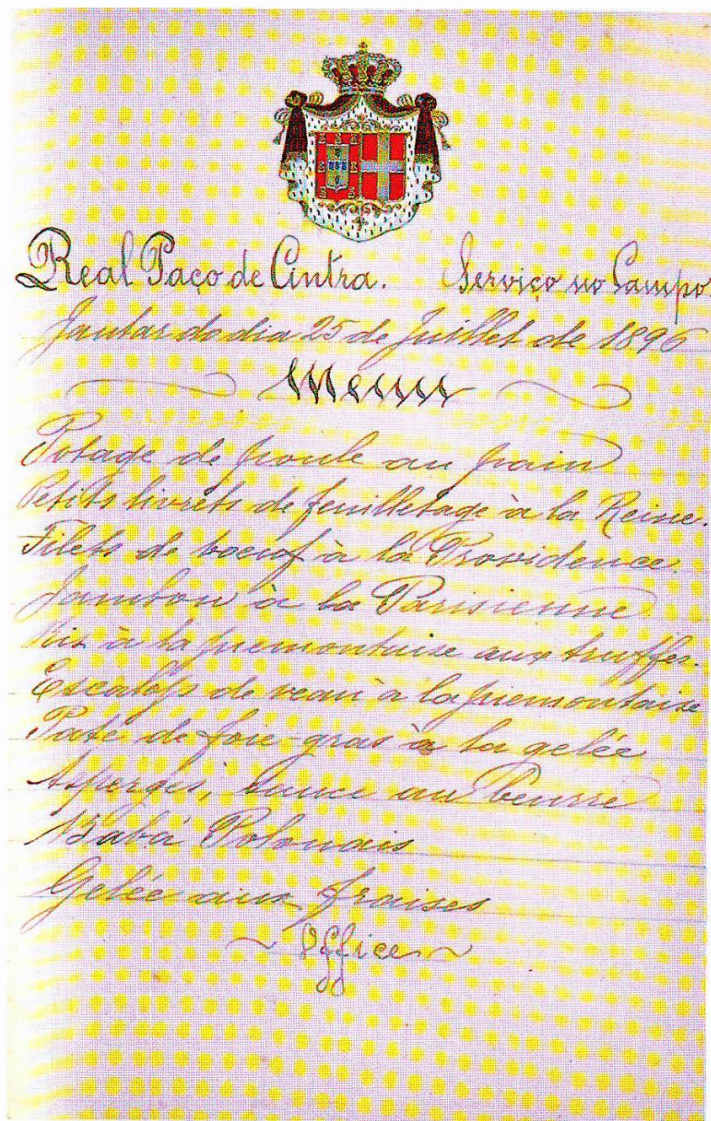 Real Paço de Cintra. Serviço no Campo.
Jantar do dia 25 de Juillet de 1896
Menu
Potage de poule au pain
Petits livrets de feuilletage à la Reine.
Filets de boeuf à la Providence.
Jambon à la Parisienne
Ris à la piemontaise aux truffes.
Escalops de veau à la piemontaise
Paté de foie-gras à la gelée
Asperges, sauce au beurre
Babá Polonais
Gelée aux fraises
Office